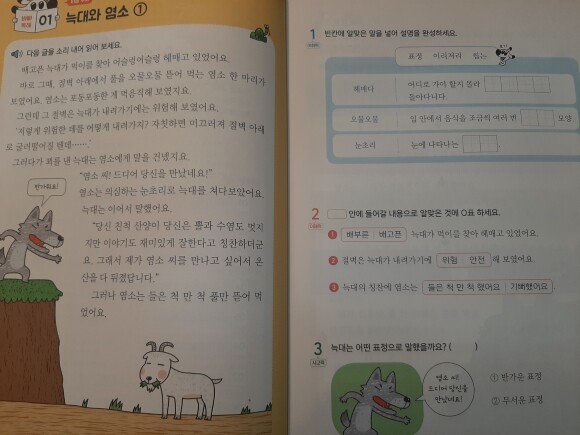 01
늑대와 염소 ①
다음 글을 소리 내어 읽어 보세요.
배고픈 늑대가 먹이를 찾아 어슬렁어슬렁 헤매고 있었어요.
바로 그때, 절벽 아래에서 풀을 오물오물 뜯어 먹는 염소 한 마리가
보였어요. 염소는 포동포동한 게 먹음직해 보였지요.
그런데 그 절벽은 늑대가 내려가기에는 위험해 보였어요.
'저렇게 위험한 데를 어떻게 내려가지? 자칫하면 미끄러져 절벽 아래
로 굴러떨어질 텐데……'
그러다가 꾀를 낸 늑대는 염소에게 말을 건넸지요.
"염소 씨! 드디어 당신을 만났네요!"
염소는 의심하는 눈초리로 늑대를 쳐다보았어요.
늑대는 이어서 말했어요.
반가워요!
"당신 친척 산양이 당신은 뿔과 수염도 멋지
지만 이야기도 재미있게 잘한다고 칭찬하더군
요. 그래서 제가 염소 씨를 만나고 싶어서 온
산을 다 뒤졌답니다."
그러나 염소는 들은 척 만 척 풀만 뜯어 먹
었어요.
1 빈칸에 알맞은 말을 넣어 설명을 완성하세요.
표정 이리저리 씹는
헤매다 어디로 가야 할지 몰라
돌아다니다.
오물오물 입 안에서 음식을 조금씩 여러 번 모양.
눈초리 눈에 나타나는 .
2 안에 들어갈 내용으로 알맞은 것에 ○표 하세요.
1 배부른 배고픈 늑대가 먹이를 찾아 헤매고 있었어요.
2 절벽은 늑대가 내려가기에 위험 안전 해 보였어요.
3 늑대의 칭찬에 염소는 들은 척 만 척 했어요 기뻐했어요 .
3 늑대는 어떤 표정으로 말했을까요? ( )
염소 씨!
드디어 당신을
만났네요!
① 반가운 표정
② 무서운 표정